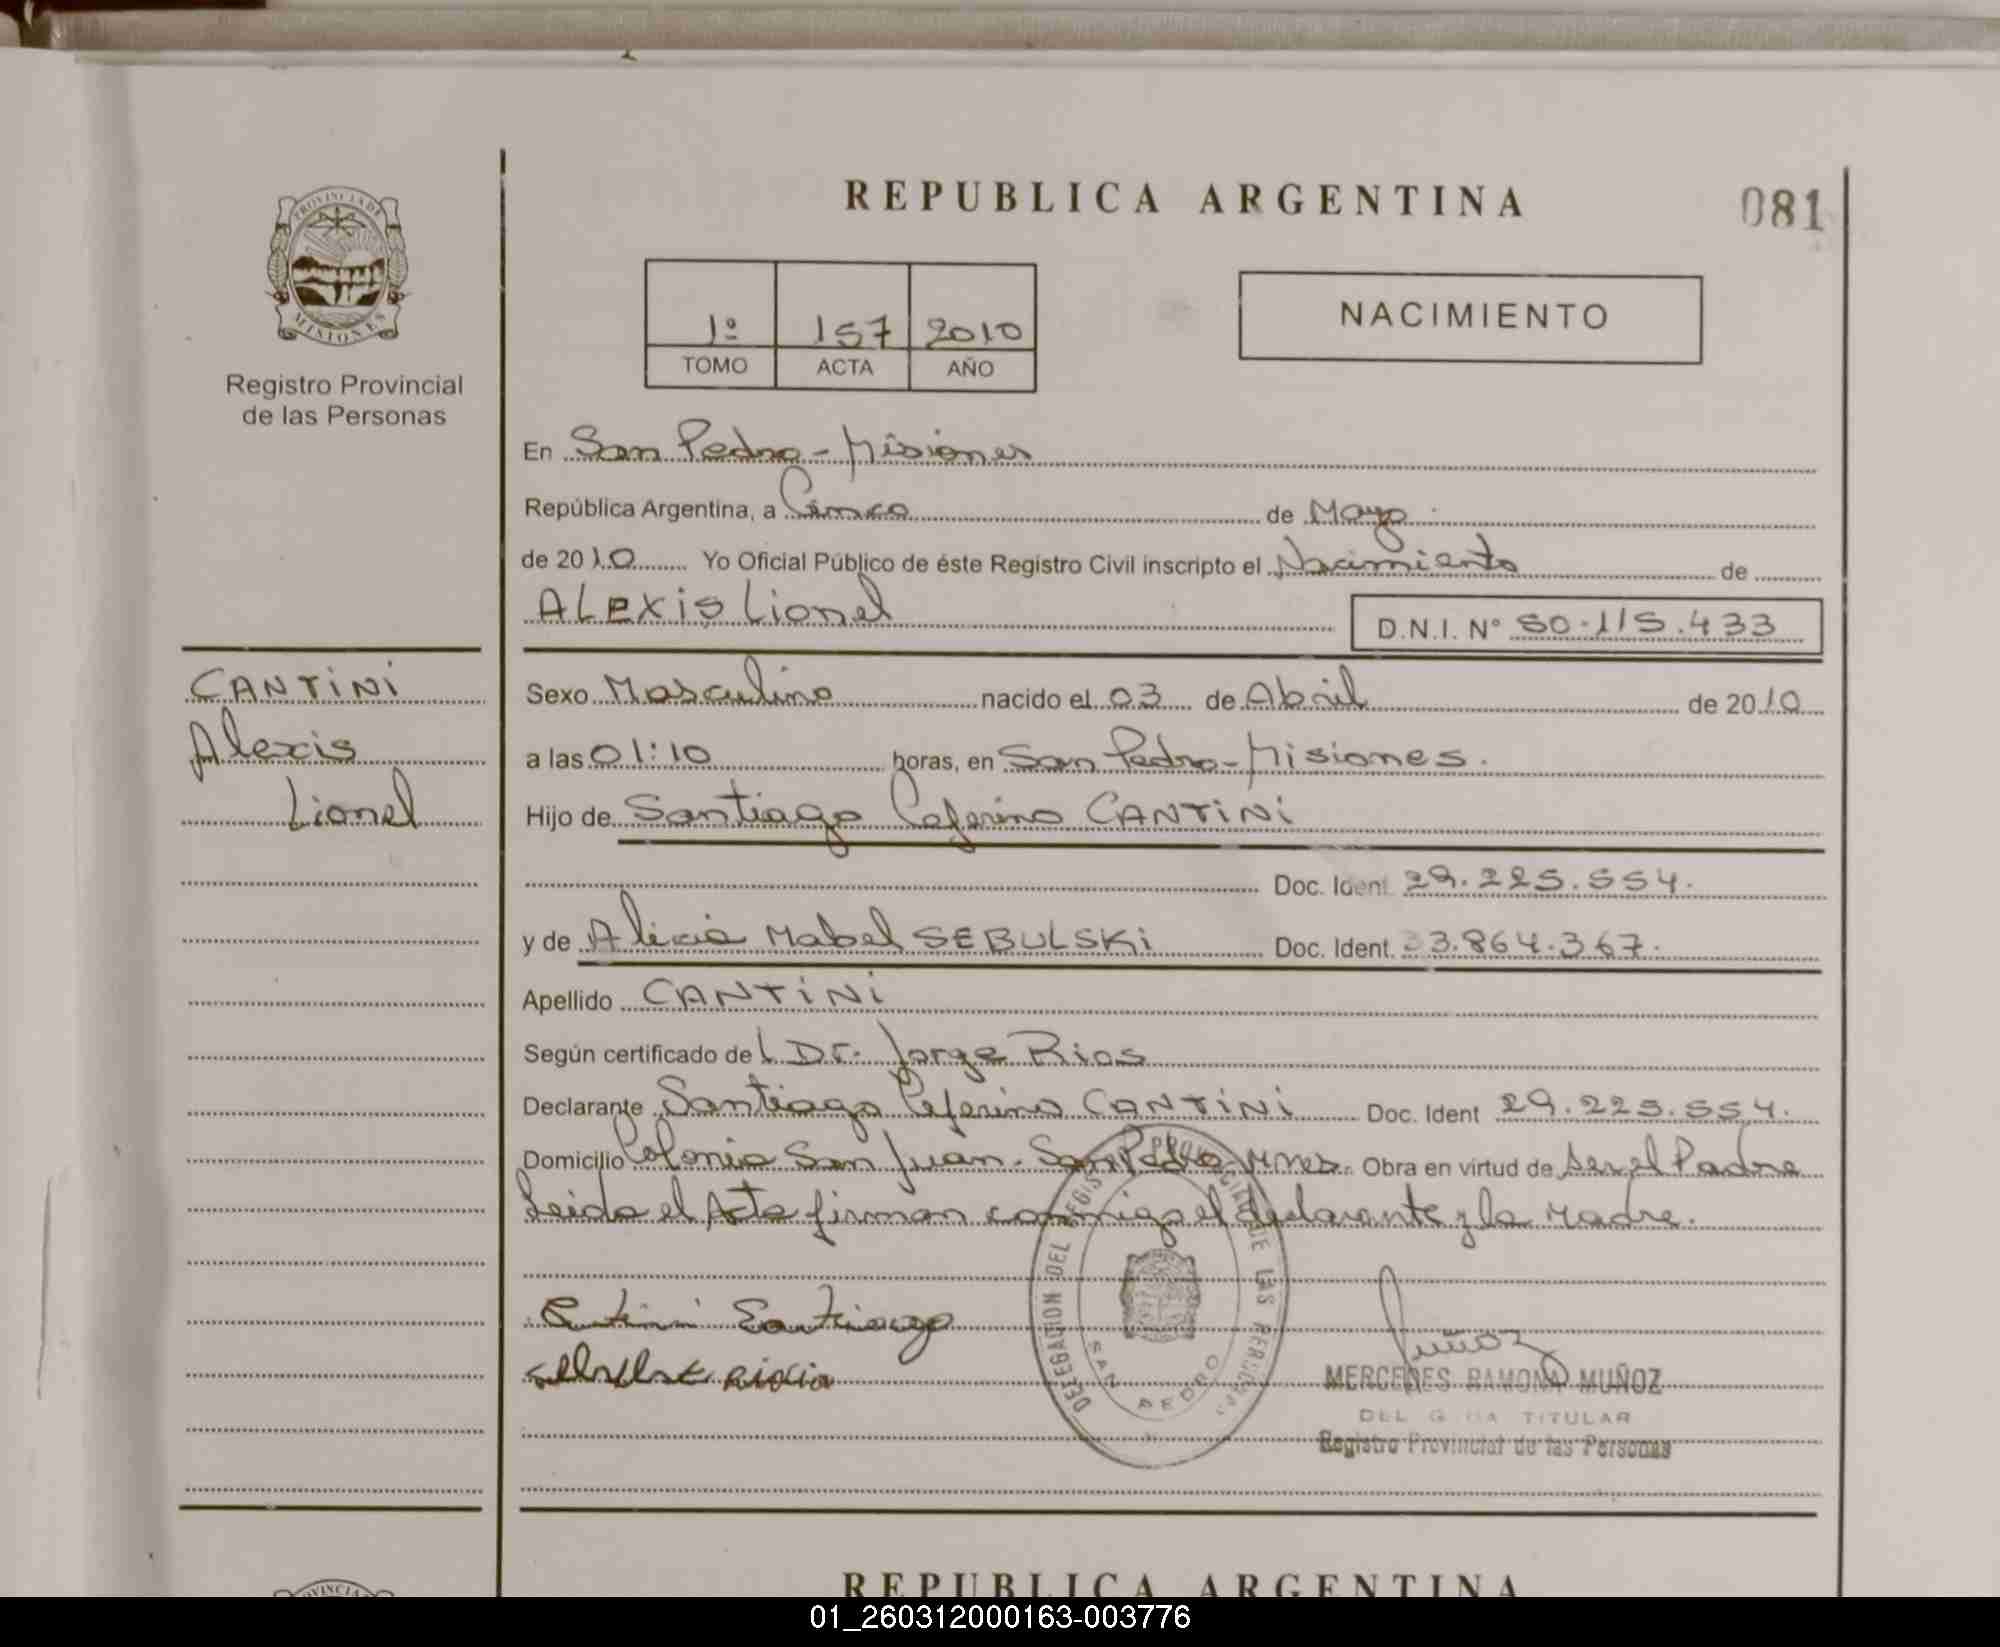 REPUBLICA ARGENTINA
081
PROVINCIA DE
MISIONES
Registro Provincial
de las Personas
1º 157 2010
TOMO ACTA AÑO
NACIMIENTO
En San Pedro - Misiones
República Argentina, a Cinco de Mayo
de 2010 Yo Oficial Público de éste Registro Civil inscripto el Nacimiento de
ALEXIS Lionel
D.N.I. Nº 50.115.433
CANTINI
Alexis
Lionel
Sexo Masculino nacido el 03 de Abril de 2010
a las 01:10 horas, en San Pedro - Misiones.
Hijo de Santiago Ceferino CANTINI
Doc. Ident. 29.225.554.
y de Alicia Mabel SEBULSKI Doc. Ident. 33.864.367.
Apellido CANTINI
Según certificado del Dr. Jorge Rios
Declarante Santiago Ceferino CANTINI Doc. Ident 29.225.554.
Domicilio Colonia San Juan. San Pedro Mnes. Obra en virtud de ser el Padre
Leida el Acta firman conmigo el declarante y la Madre.
DELEGACION DEL REGISTRO PROVINCIAL DE LAS PERSONAS
SAN PEDRO
Cantini Santiago
Muñoz
MERCEDES RAMONA MUÑOZ
TITULAR
Registro Provincial de las Personas
REPUBLICA ARGENTINA
01_260312000163-003776